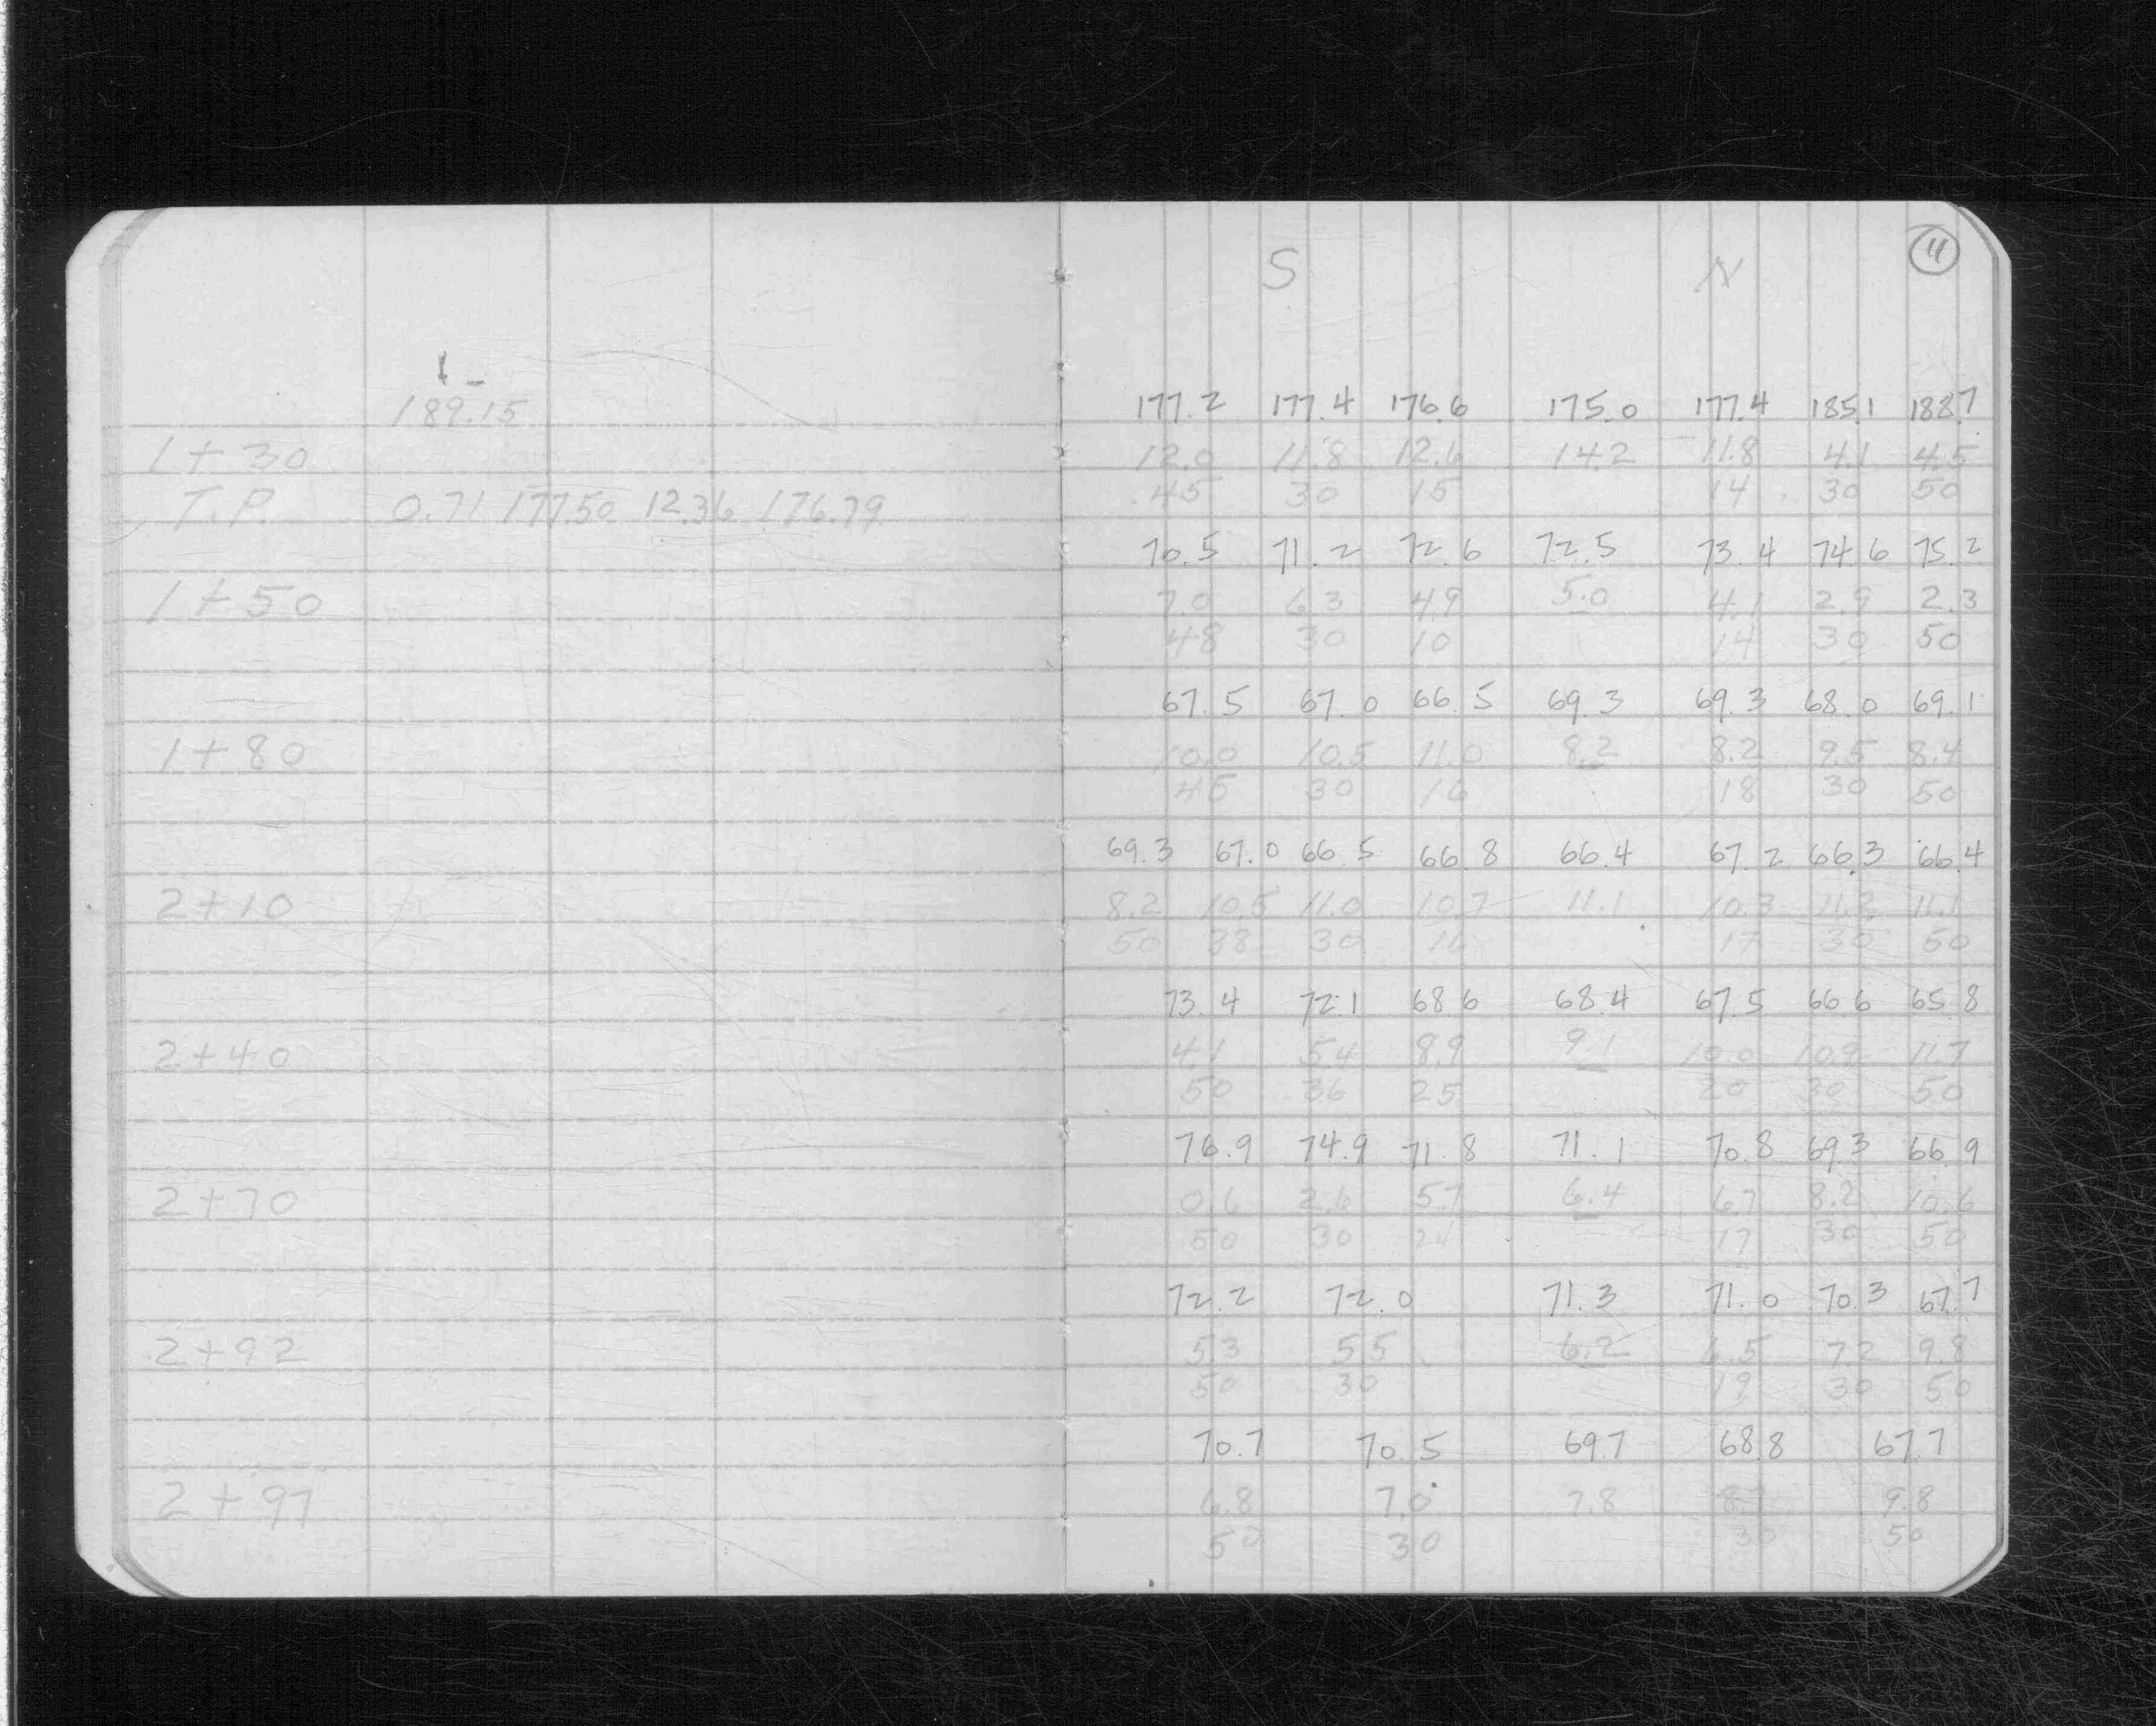 S N 11
189.15 177.2 177.4 176.6 175.0 177.4 185.1 188.7
1+30 12.0 11.8 12.6 14.2 11.8 4.1 4.5
T.P. 0.71 177.50 12.36 176.79 45 30 15 14 30 50
70.5 71.2 72.6 72.5 73.4 74.6 75.2
1+50 7.0 6.3 4.9 5.0 4.1 2.9 2.3
48 30 10 14 30 50
67.5 67.0 66.5 69.3 69.3 68.0 69.1
1+80 10.0 10.5 11.0 8.2 8.2 9.5 8.4
45 30 16 18 30 50
69.3 67.0 66.5 66.8 66.4 67.2 66.3 66.4
2+10 8.2 10.5 11.0 10.7 11.1 10.3 11.2 11.1
50 38 30 16 17 30 50
73.4 72.1 68.6 68.4 67.5 66.6 65.8
2+40 4.1 5.4 8.9 9.1 10.0 10.9 11.7
50 36 25 20 30 50
76.9 74.9 71.8 71.1 70.8 69.3 66.9
2+70 0.6 2.6 5.7 6.4 6.7 8.2 10.6
50 30 24 17 30 50
72.2 72.0 71.3 71.0 70.3 67.7
2+92 5.3 5.5 6.2 6.5 7.2 9.8
50 30 19 30 50
70.7 70.5 69.7 68.8 67.7
2+97 6.8 7.0 7.8 8.7 9.8
50 30 30 50